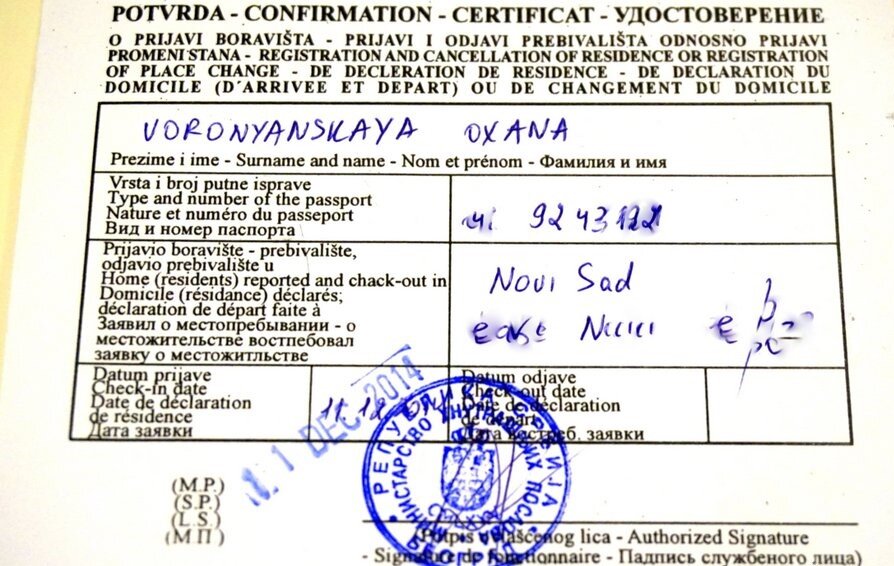 POTVRDA - CONFIRMATION - CERTIFICAT - УДОСТОВЕРЕНИЕ
O PRIJAVI BORAVIŠTA - PRIJAVI I ODJAVI PREBIVALIŠTA ODNOSNO PRIJAVI
PROMENI STANA - REGISTRATION AND CANCELLATION OF RESIDENCE OR REGISTRATION
OF PLACE CHANGE - DE DECLERATION DE RESIDENCE - DE DECLARATION DU
DOMICILE (D'ARRIVEE ET DEPART) OU DE CHANGEMENT DU DOMICILE
VORONYANSKAYA OXANA
Prezime i ime - Surname and name - Nom et prénom - Фамилия и имя
Vrsta i broj putne isprave
Type and number of the passport
Nature et numéro du passeport
Вид и номер паспорта
Prijavio boravište - prebivalište,
odjavio prebivalište u
Home (residents) reported and chack-out in
Domicile (résidance) déclarés;
déclaration de départ faite à
Заявил о местопребывании - о
местожительстве востпебовал
заявку о местожитлстве
Novi Sad
Datum prijave
Check-in date
Date de déclaration
de résidence
Дата заявки
11.12
1 DEC 2014
Datum odjave
Check-out date
Date de déclaration
de départ
Дата востреб. заявки
РЕПУБЛИКА СРБИЈА
МИНИСТАРСТВО УНУТРАШЊИХ ПОСЛОВА
(M.P.)
(S.P.)
(L.S.)
(М П)
Potpis ovlašćenog lica - Authorized Signature
- Signature de fonctionnaire - Падпись службеного лица)